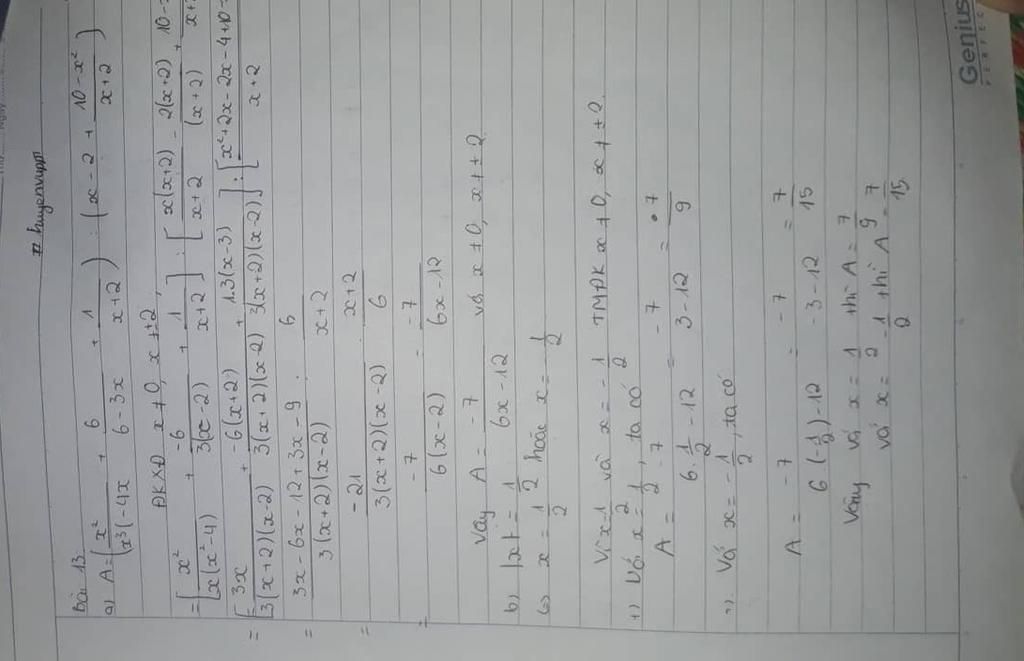 huyenvupp
Bài 13
a) A = ( x²/(x³-4x) + 6/(6-3x) + 1/(x+2) ) : ( x-2 + (10-x²)/(x+2) )
ĐKXĐ x ≠ 0, x ≠ ±2,
= [ x²/(x(x²-4)) + -6/(3(x-2)) + 1/(x+2) ] : [ x(x+2)/(x+2) - 2(x+2)/(x+2) + 10-
= [ 3x/(3(x+2)(x-2)) + -6(x+2)/(3(x+2)(x-2)) + 1.3(x-3)/(3(x+2)(x-2)) ] : [ x²+2x-2x-4+10-/(x+2)
= (3x-6x-12+3x-9)/(3(x+2)(x-2)) : 6/(x+2)
= -21/(3(x+2)(x-2)) . (x+2)/6
= -7/(6(x-2)) = -7/(6x-12)
Vậy A = -7/(6x-12) với x ≠ 0, x ≠ ±2
b) |x| = 1/2
(=) x = 1/2 hoặc x = 1/2
Vì x 1/2 và x = -1/2 TMĐK x ≠ 0, x ≠ ±2.
+) Với x = 1/2, ta có
A = -7/(6.1/2-12) = -7/(3-12) = 7/9
+) Với x = -1/2, ta có
A = -7/(6(-1/2)-12) = -7/(-3-12) = 7/15
Vậy với x = 1/2 thì A = 7/9
với x = -1/2 thì A = 7/15.
Genius